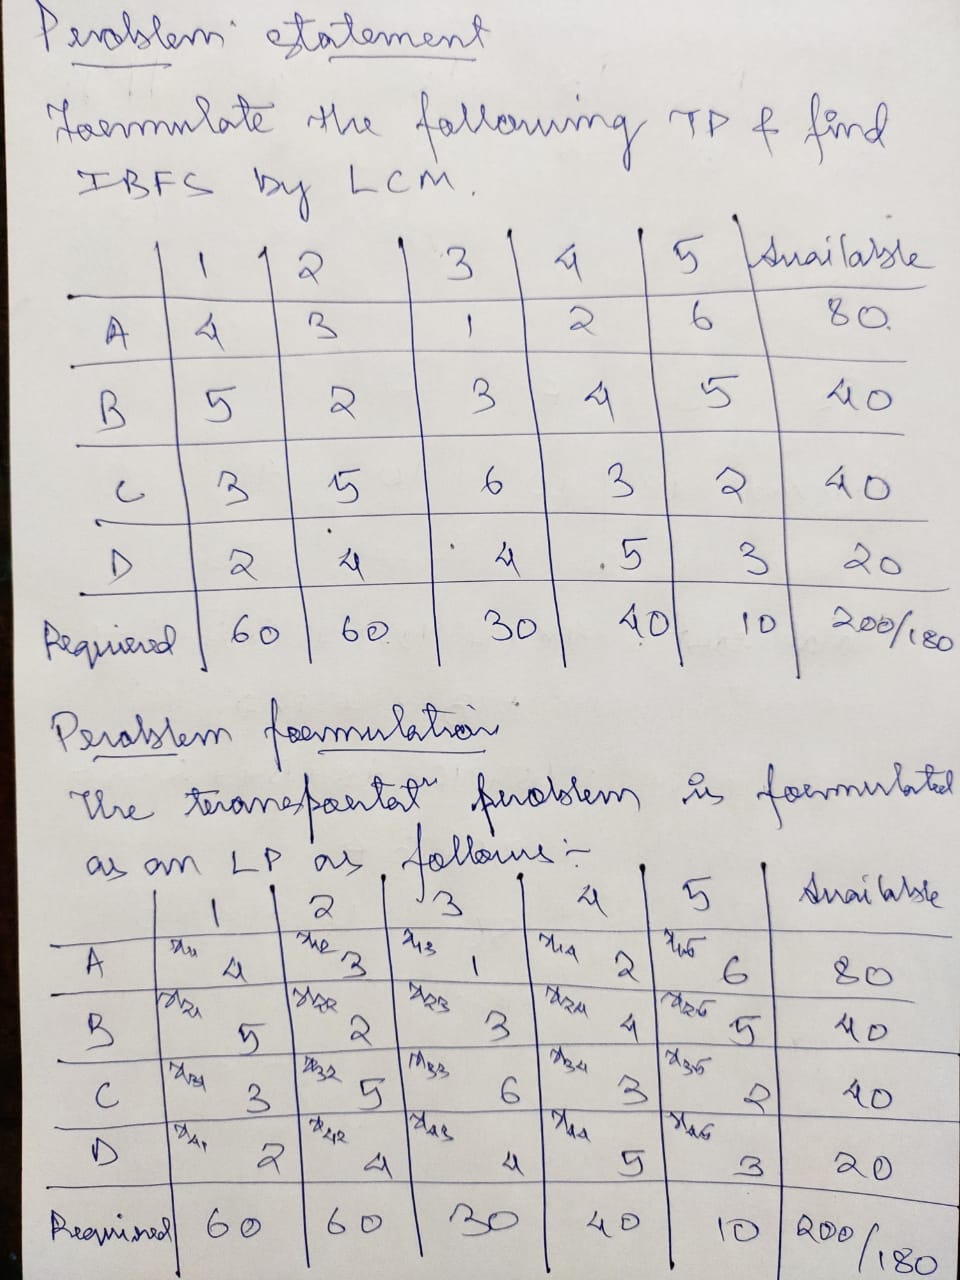 Problem statement
Formulate the following TP & find
IBFS by LCM.
1 2 3 4 5 Available
A 4 3 1 2 6 80
B 5 2 3 4 5 40
C 3 5 6 3 2 40
D 2 4 4 5 3 20
Required 60 60 30 40 10 200/180
Problem formulation
The transportatⁿ problem is formulated
as an LP as follows:-
1 2 3 4 5 Available
A x11 4 x12 3 x13 1 x14 2 x15 6 80
B x21 5 x22 2 x23 3 x24 4 x25 5 40
C x31 3 x32 5 x33 6 x34 3 x35 2 40
D x41 2 x42 4 x43 4 x44 5 x45 3 20
Required 60 60 30 40 10 200/180